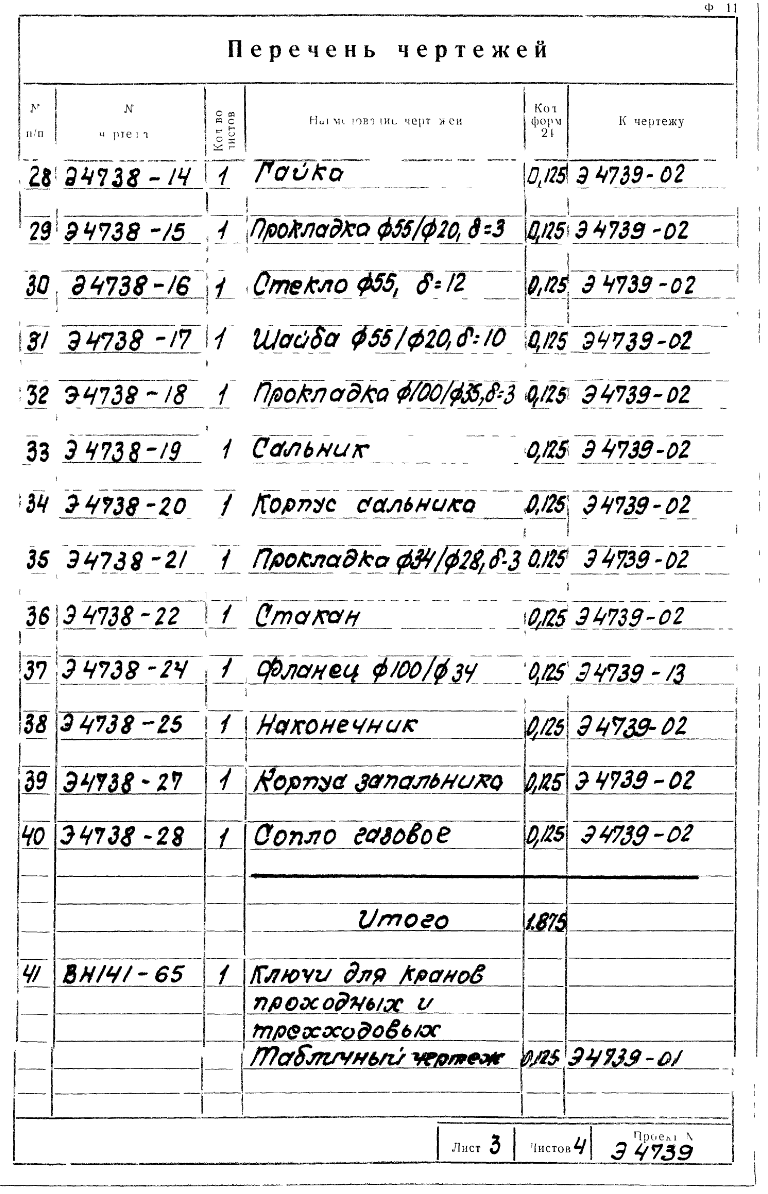 Ф 11
Перечень чертежей
N п/п
N чертежа
Кол во листов
Наименование чертежей
Кол форм 24
К чертежу
28 Э4738-14 1 Гайка 0,125 Э4739-02
29 Э4738-15 1 Прокладка ф55/ф20, δ=3 0,125 Э4739-02
30 Э4738-16 1 Стекло ф55, δ=12 0,125 Э4739-02
31 Э4738-17 1 Шайба ф55/ф20, δ=10 0,125 Э4739-02
32 Э4738-18 1 Прокладка ф100/ф35, δ=3 0,125 Э4739-02
33 Э4738-19 1 Сальник 0,125 Э4739-02
34 Э4738-20 1 Корпус сальника 0,125 Э4739-02
35 Э4738-21 1 Прокладка ф34/ф28, δ-3 0.125 Э4739-02
36 Э4738-22 1 Стакан 0,125 Э4739-02
37 Э4738-24 1 Фланец ф100/ф34 0,125 Э4739-13
38 Э4738-25 1 Наконечник 0,125 Э4739-02
39 Э4738-27 1 Корпус запальника 0,125 Э4739-02
40 Э4738-28 1 Сопло газовое 0,125 Э4739-02
Итого 1.875
41 ВН141-65 1 Ключи для кранов
проходных и
трехходовых
Табличный чертеж 0,125 Э4739-01
Лист 3 Листов 4 Проект N
Э4739